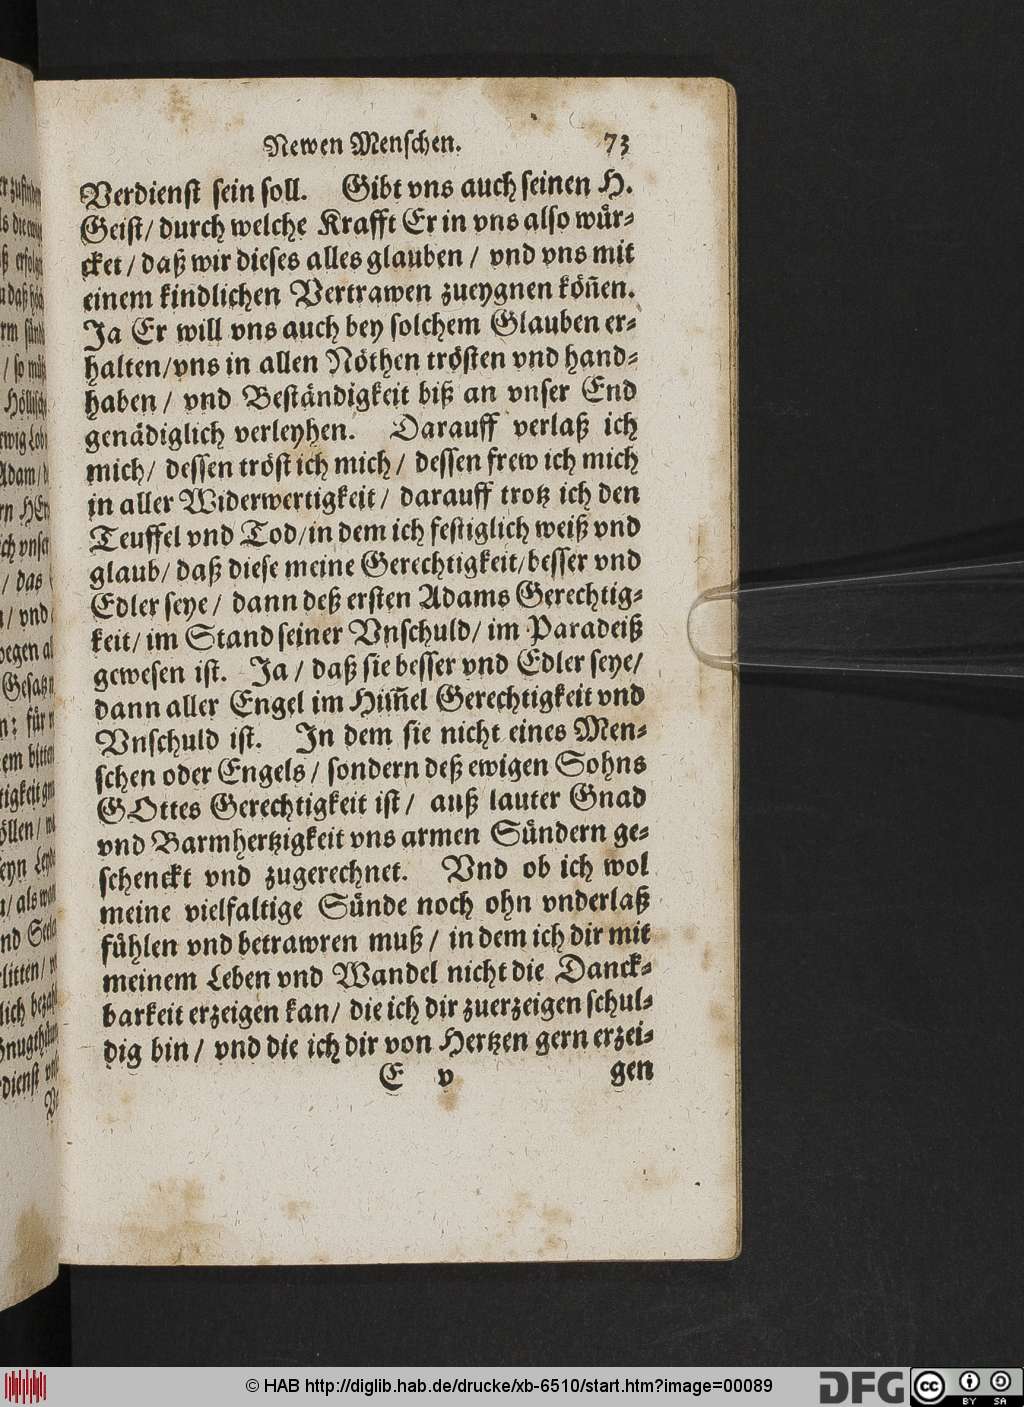 Newen Menschen. 73
Verdienst sein soll. Gibt vns auch seinen H.
Geist/ durch welche Krafft Er in vns also wür-
cket / daß wir dieses alles glauben / vnd vns mit
einem kindlichen Vertrawen zueygnen köñen.
Ja Er will vns auch bey solchem Glauben er-
halten/vns in allen Nöthen trösten vnd hand-
haben / vnd Beständigkeit biß an vnser End
genädiglich verleyhen. Darauff verlaß ich
mich/ dessen tröst ich mich / dessen frew ich mich
in aller Widerwertigkeit / darauff trotz ich den
Teuffel vnd Tod/in dem ich festiglich weiß vnd
glaub/ daß diese meine Gerechtigkeit/besser vnd
Edler seye / dann deß ersten Adams Gerechtig-
keit/ im Stand seiner Vnschuld/ im Paradeiß
gewesen ist. Ja / daß sie besser vnd Edler seye/
dann aller Engel im Him̃el Gerechtigkeit vnd
Vnschuld ist. In dem sie nicht eines Men-
schen oder Engels / sondern deß ewigen Sohns
GOttes Gerechtigkeit ist / auß lauter Gnad
vnd Barmhertzigkeit vns armen Sündern ge-
schenckt vnd zugerechnet. Vnd ob ich wol
meine vielfaltige Sünde noch ohn vnderlaß
fühlen vnd betrawren muß / in dem ich dir mit
meinem Leben vnd Wandel nicht die Danck-
barkeit erzeigen kan/ die ich dir zuerzeigen schul-
dig bin / vnd die ich dir von Hertzen gern erzei-
E v gen
© HAB http://diglib.hab.de/drucke/xb-6510/start.htm?image=00089
DFG
cc BY SA